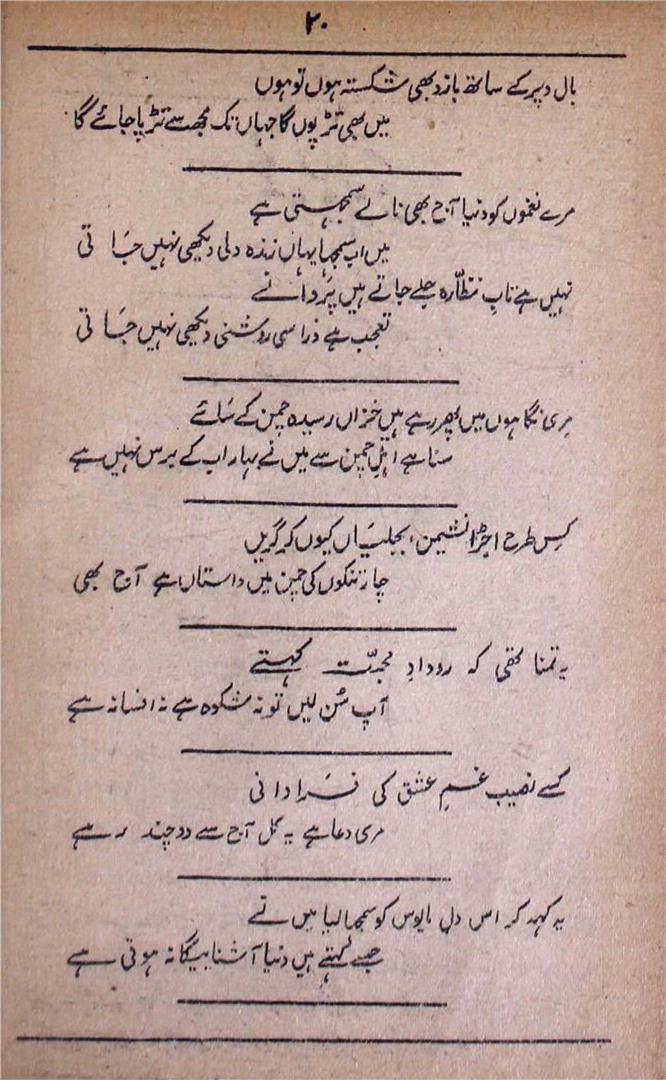 ۲۰
بال و پر کے ساتھ بازو بھی شکستہ ہوں تو ہوں
میں بھی تڑپوں گا جہاں تک مجھ سے تڑپا جائے گا
مرے نغموں کو دنیا آج بھی نالے سمجھتی ہے
میں اب سمجھا یہاں زندہ دلی دیکھی نہیں جاتی
نہیں ہے تابِ نظّارہ چلے جاتے ہیں پروانے
تعجب ہے ذرا سی روشنی دیکھی نہیں جاتی
مری نگاہوں میں پھر رہے ہیں خزاں رسیدہ چمن کے سائے
سنا ہے اہلِ چمن سے میں نے بہار اب کے برس نہیں ہے
کس طرح اجڑا نشیمن، بجلیاں کیوں کر گریں
چار تنکوں کی چمن میں داستاں ہے آج بھی
یہ تمنا تھی کہ رودادِ محبّت کہتے
آپ سُن لیں تو نہ شکوہ ہے نہ افسانہ ہے
کسے نصیب غمِ عشق کی فراوانی
مری دعا ہے یہ کل آج سے دوچند رہے
یہ کہہ کر اس دلِ مایوس کو سمجھا لیا میں نے
جسے کہتے ہیں دنیا آشنا بیگانہ ہوتی ہے